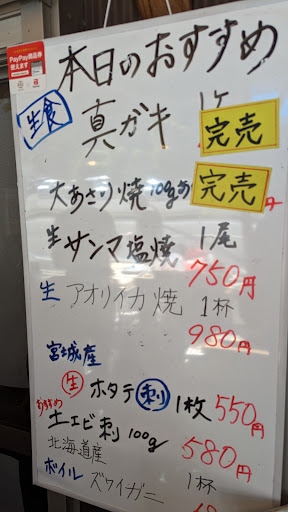 PayPay商品券
使えます
本日のおすすめ
生食
真ガキ 1ケ
完売
大あさり焼 100gあ
完売
円
生サンマ塩焼 1尾
750円
生アオリイカ焼 1杯
980円
宮城産
生 ホタテ 刺 1枚 550円
おすすめ
土エビ刺 100g 580円
北海道産
ボイル ズワイガニ 1杯